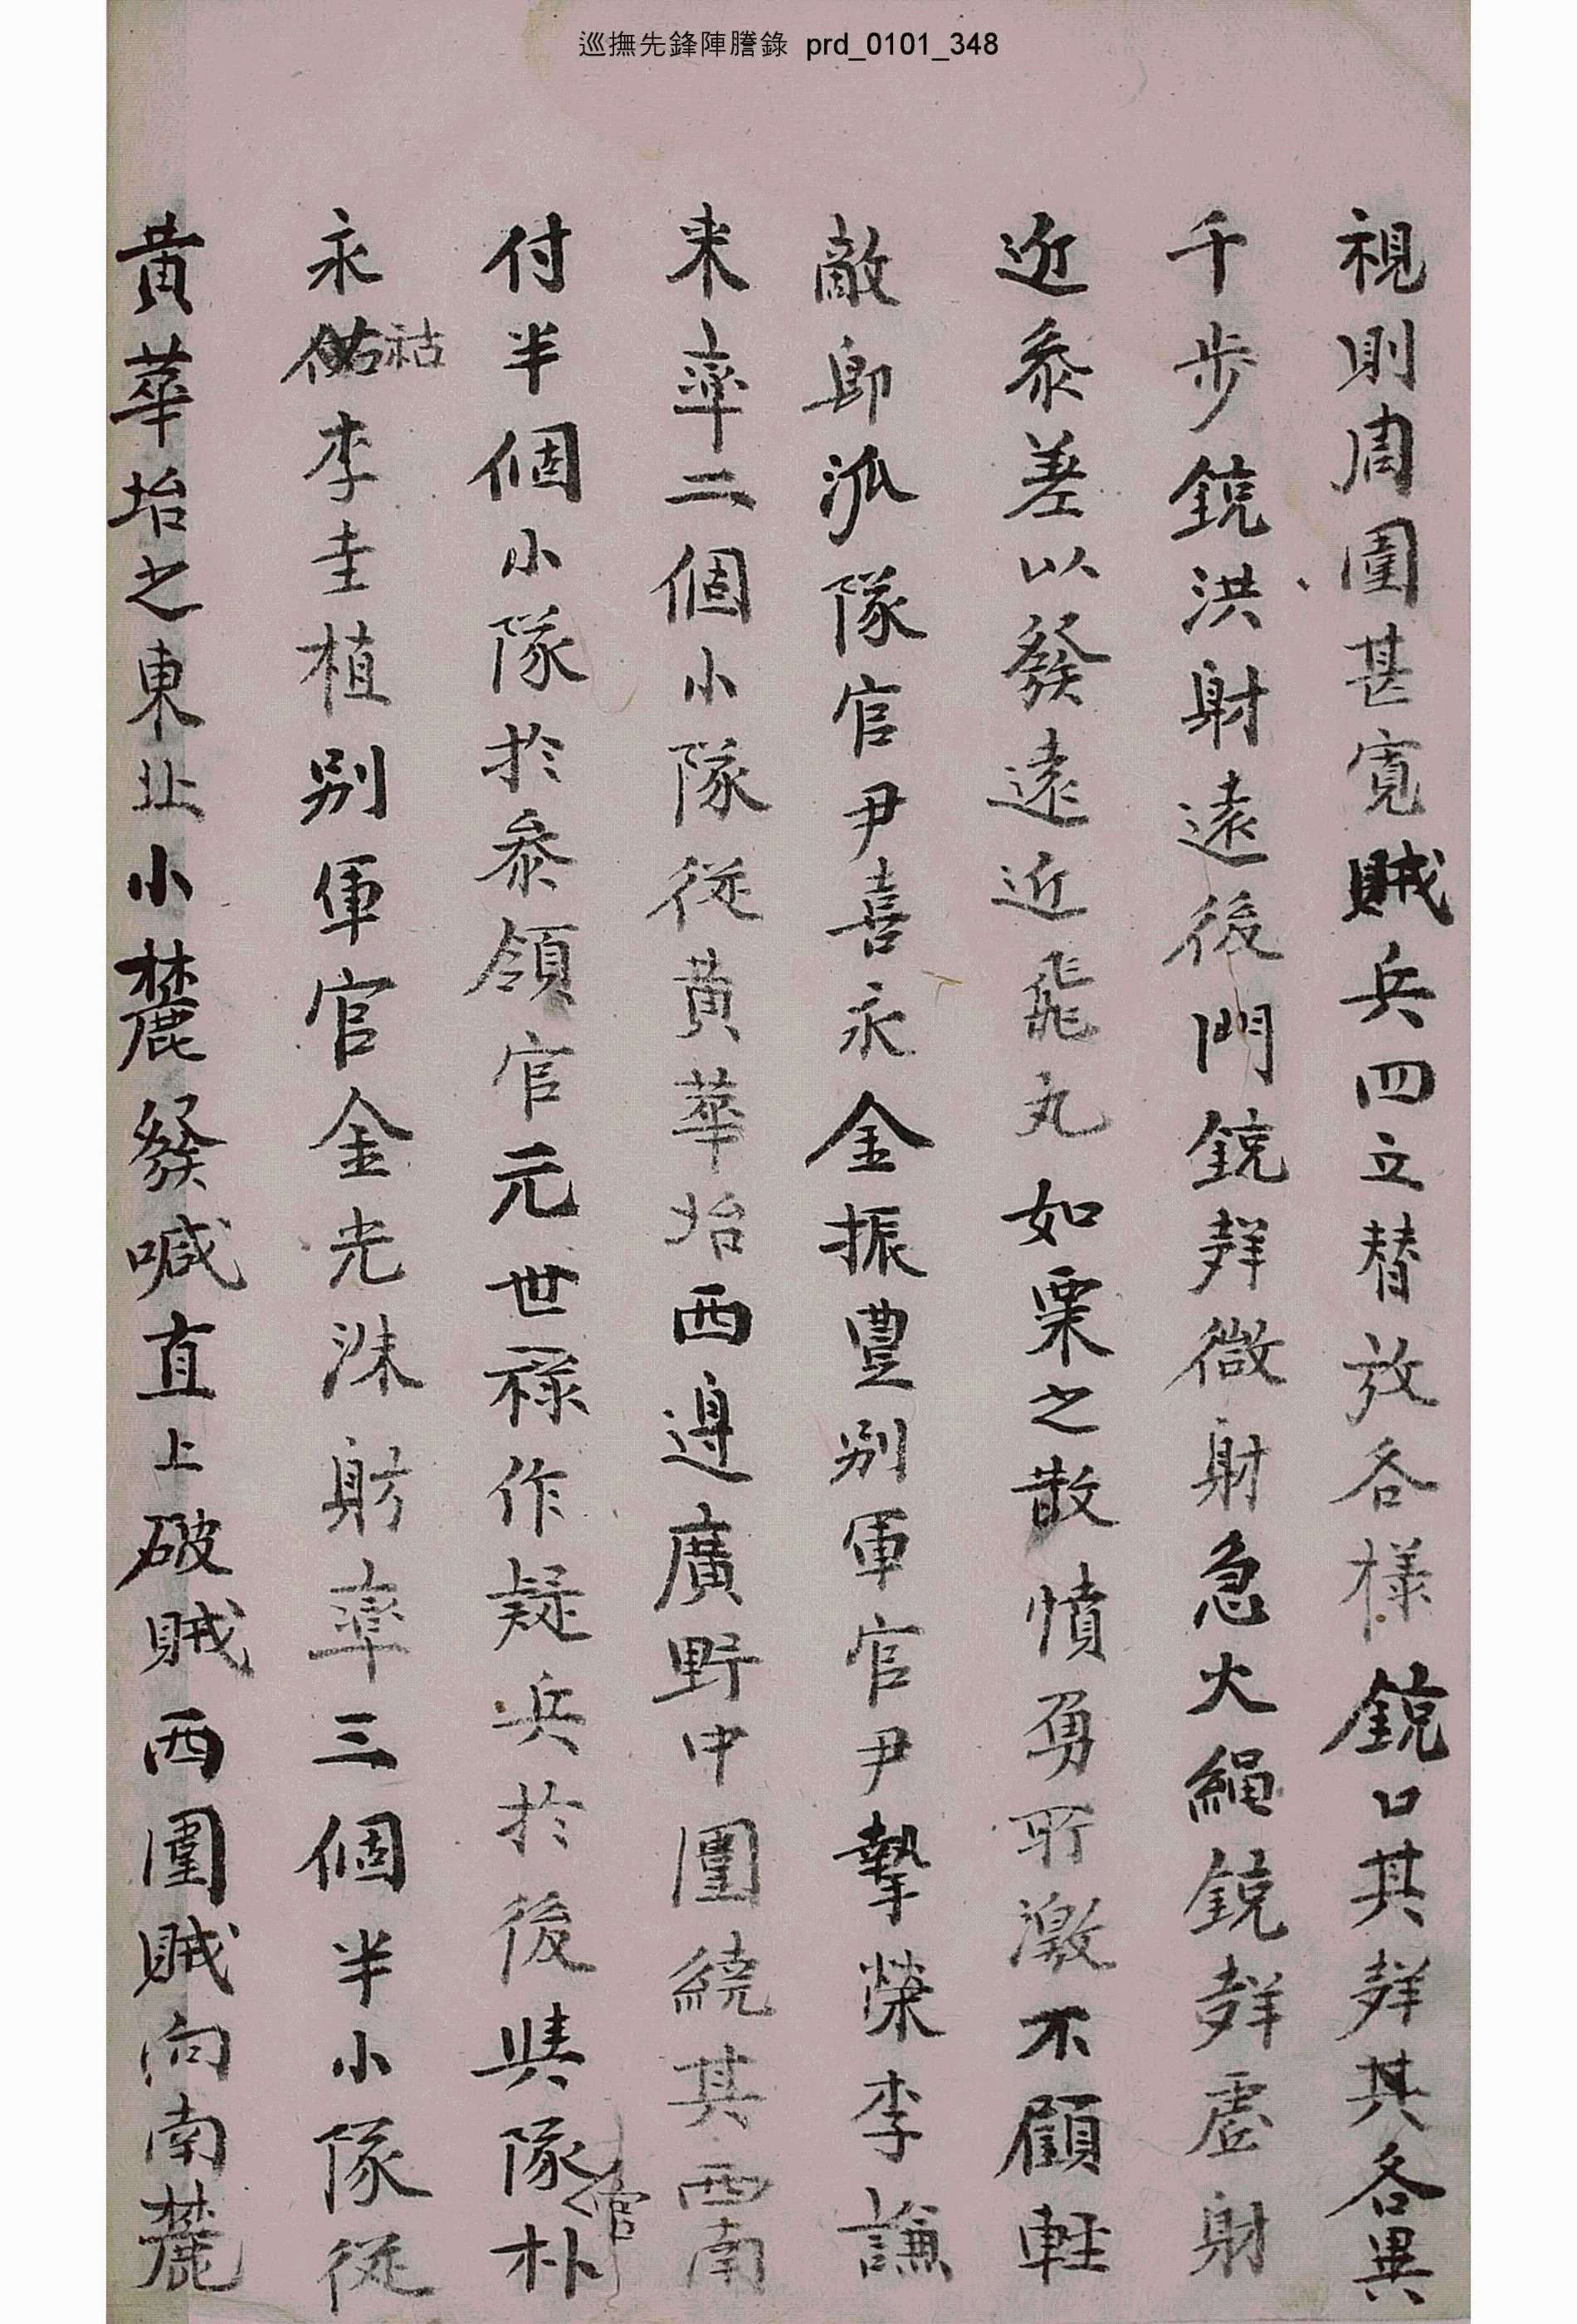 巡撫先鋒陣謄錄 prd_0101_348
視則周圍甚寬賊兵四立替放各樣銃口其聲其各異
千步銃洪射遠後門銃聲微射急火繩銃聲虛射
近叅差以發遠近飛丸如栗之散憤勇所激不顧輕
敵卽派隊官尹喜永金振豊别軍官尹摯榮李謙
来率二個小隊從黃華坮西邊廣野中圍繞其西南
付半個小隊於叅領官元世祿作疑兵於後與隊官朴
永祜李圭植别軍官金光洙躬率三個半小隊從
黃華坮之東北小麓發喊直上破賊西圍賊向南麓